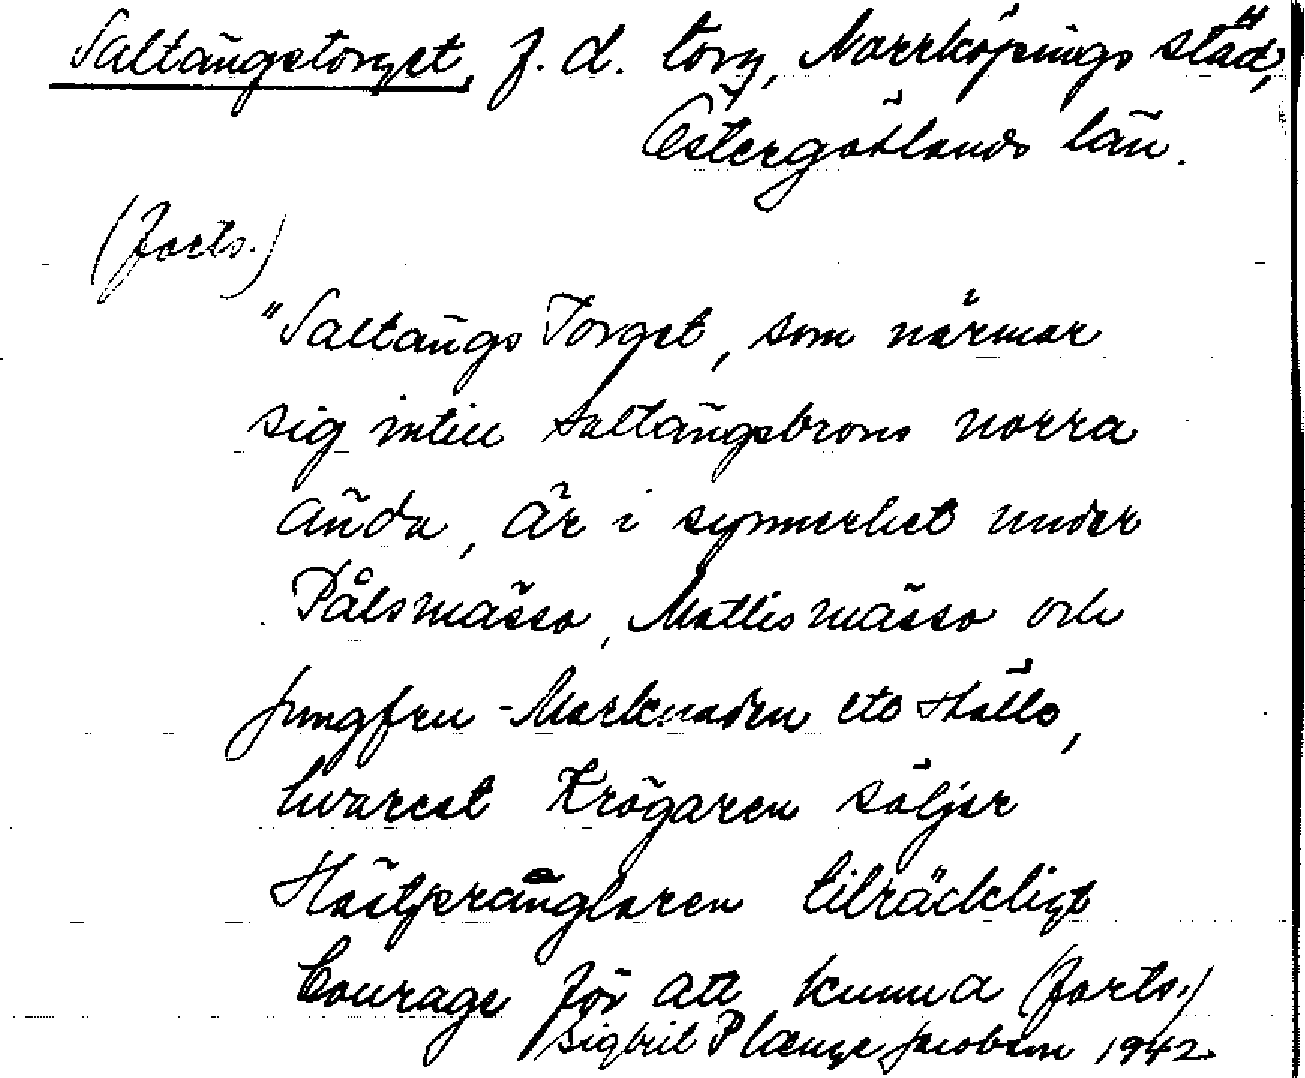 Saltängstorget, f. d. torg, Norrköpings stad,
Östergötlands län.
(forts.)
"Saltängs Torget, som närmar
sig intill Saltängsbrons norra
ända, är i synnerhet under
Pålsmässo, Mattismässo och
Jungfru-Marknaden ett Ställe,
hvarest Krögaren säljer
Hästprånglaren tilräckligt
Courage för att kunna (forts.)
Sigbrit Plænge Jacobson 1942.